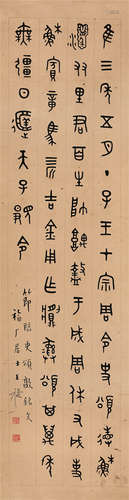 隹三年五月丁子王才宗周令史頌省穌
友里君百生帥盩于成周休又成事
穌賓章馬四匹吉金用乍彝頌其萬年
無彊日天子令
節臨史頌敦銘文
福厂居士王禔